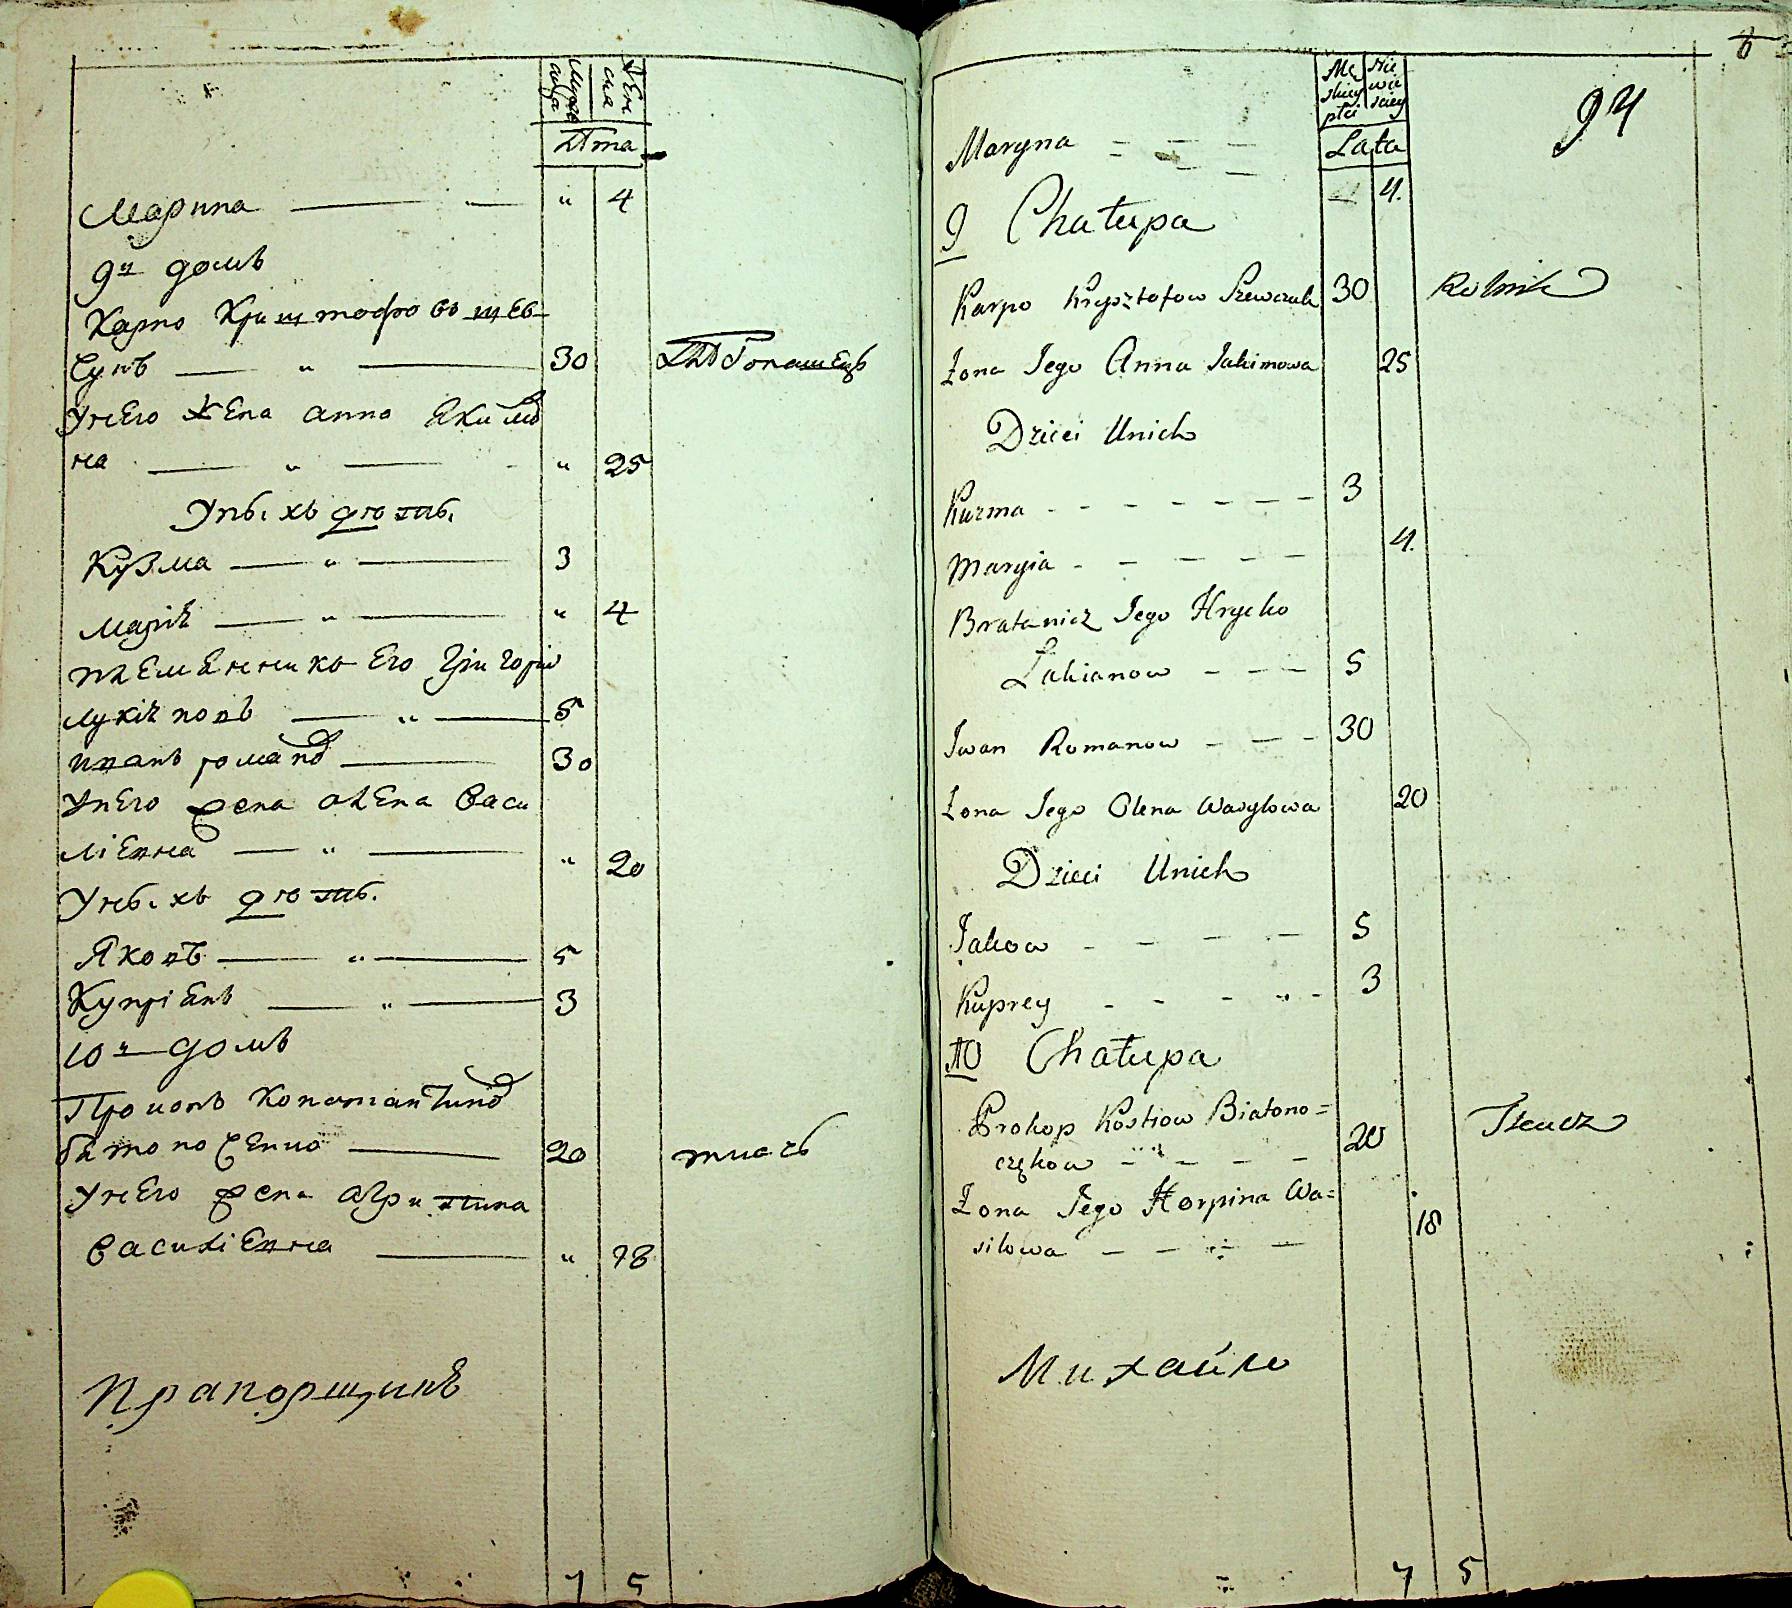 Лѣта
Марина " 4
9й домъ
Карпо Криштофовъ шев
чукъ " 30
Унего жена анна Якимов
на " " 25
Унихъ дѣти.
Кузма " 3
Марія " " 4
племянникъ его Григорій
лукіяновъ " 5
иванъ романов 30
Унего жена олена Васи
ліевна " " 20
Унихъ дѣти.
Яковъ " 5
Купріянъ " 3
10й домъ
Прокопъ Константинов
20 ткачъ
Унего жена агрипина
Василіевна " 18
Прапорщикъ
7 5
6
94
Męskiey płci Niewieściey
Lata
Maryna 4.
9 Chałupa
Karpo Krysztofow Szewczuk 30 Rolnik
Żona Jego Anna Jakimowa 25
Dzieci Unich
Kuzma 3
Maryia 4.
Bratanicz Jego Hrycko
Łukianow 5
Iwan Romanow 30
Żona Jego Olena Wasylowa 20
Dzieci Unich
Jakow 5
Kuprey 3
10 Chałupa
Prokop Kostiow Białono=
czękow 20 Tkacz
Żona Jego Horpina Wa=
silowa 18
Михайло
7 5